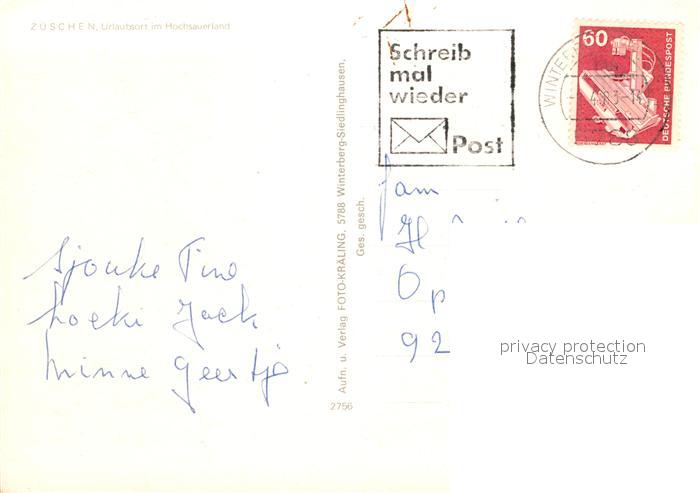 ZÜSCHEN, Urlaubsort im Hochsauerland
Schreib
mal
wieder
Post
60
DEUTSCHE BUNDESPOST
WINTER
Aufn. u. Verlag FOTO-KRÄLING, 5788 Winterberg-Siedlinghausen,
Ges. gesch.
2756
fam
Op
92
Sjouke Tino
hoeki Jack
minne Geertje
privacy protection
Datenschutz